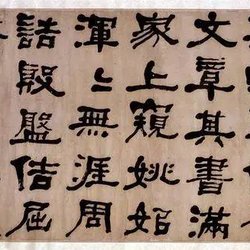 文章其書滿
家上窺姚姒
渾〻無涯周
誥殷盤佶屈